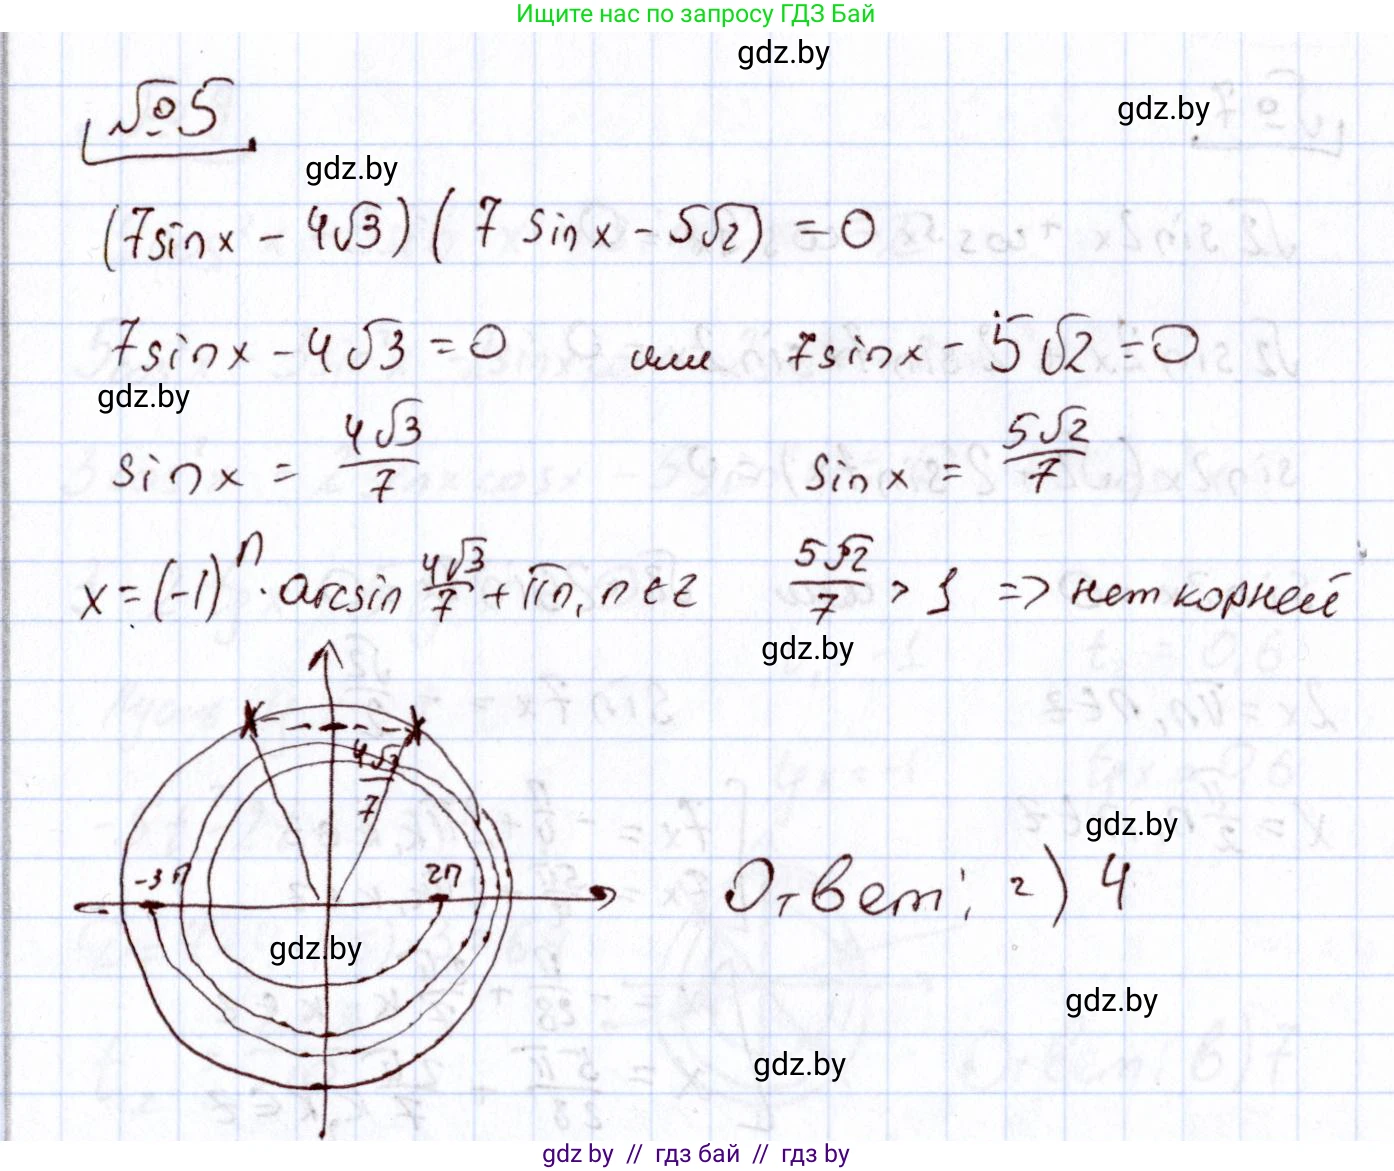 Ищите нас по запросу ГДЗ Бай
gdz.by
gdz.by
№5
gdz.by
(7sinx - 4√3)(7 sinx - 5√2) = 0
7sinx - 4√3 = 0 или 7sinx - 5√2 = 0
gdz.by
sinx = 4√3/7 sinx = 5√2/7
x = (-1)^n · arcsin 4√3/7 + πn, n∈Z 5√2/7 > 1 => нет корней
gdz.by
4√3/7
gdz.by
-3π 2π
Ответ: г) 4
gdz.by
gdz.by
gdz.by
gdz by // гдз бай // gdz by